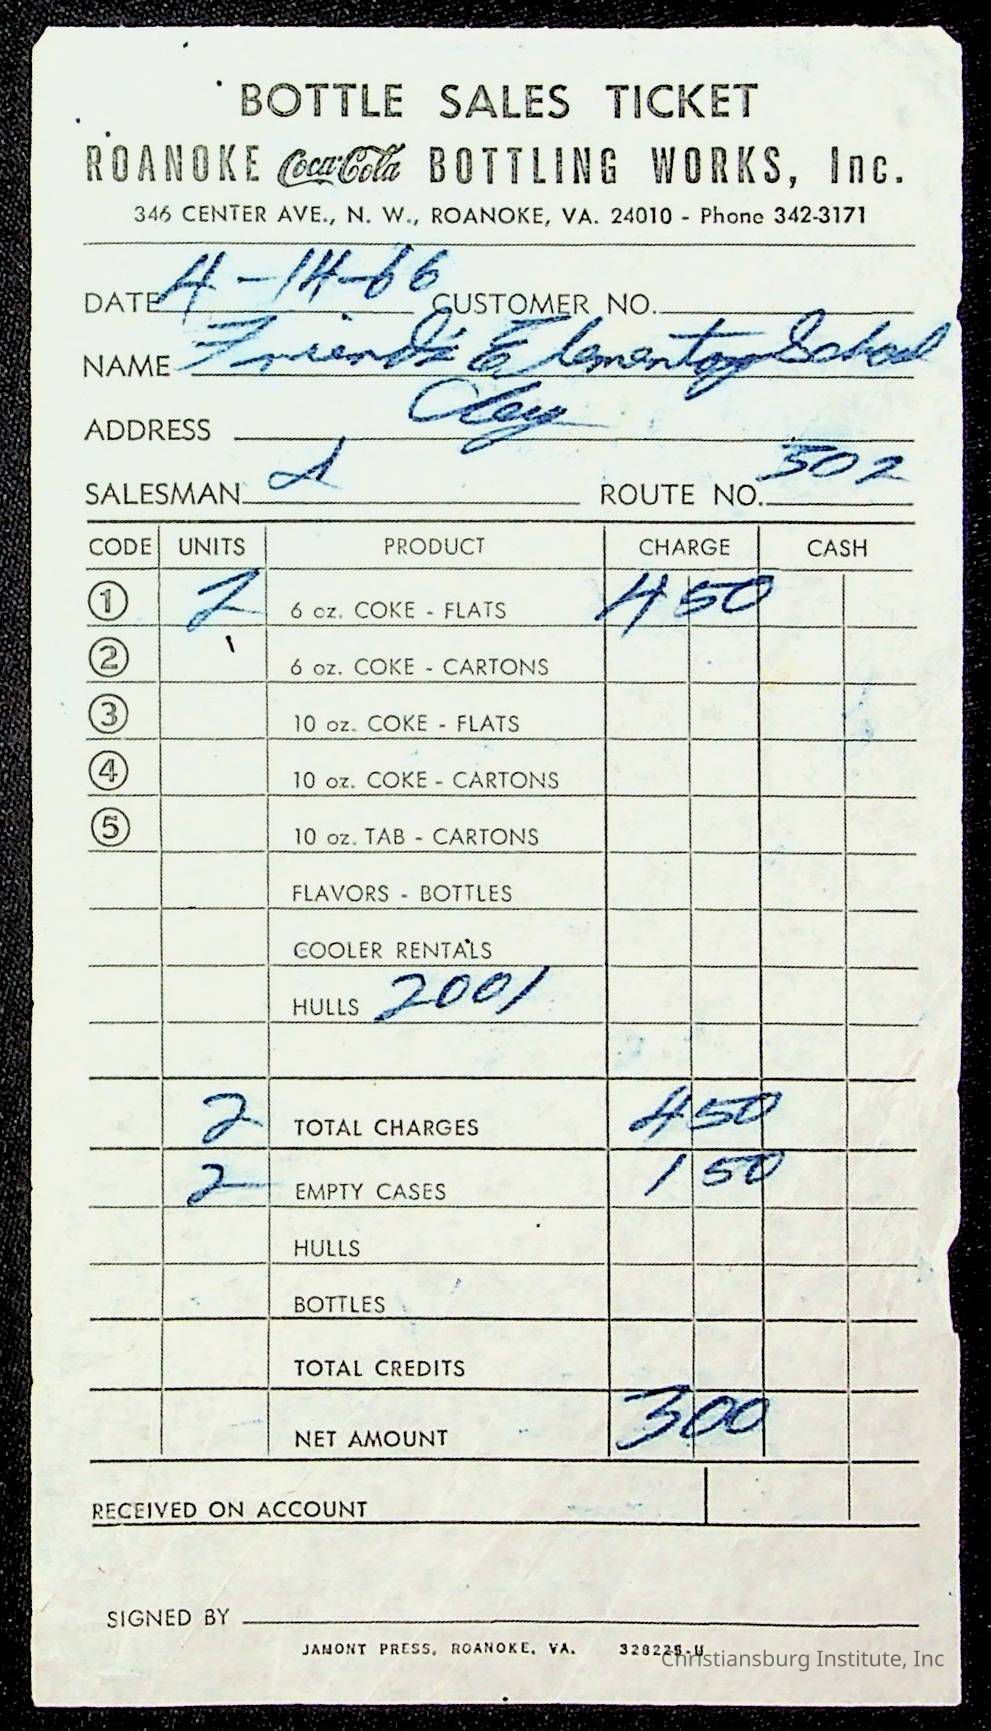 BOTTLE SALES TICKET
ROANOKE Coca-Cola BOTTLING WORKS, Inc.
346 CENTER AVE., N. W., ROANOKE, VA. 24010 - Phone 342-3171
DATE 4-14-66 CUSTOMER NO.
NAME Friends Elementary School
ADDRESS
SALESMAN ROUTE NO. 502
CODE UNITS PRODUCT CHARGE CASH
① 2 6 oz. COKE - FLATS 4 50
② 6 oz. COKE - CARTONS
③ 10 oz. COKE - FLATS
④ 10 oz. COKE - CARTONS
⑤ 10 oz. TAB - CARTONS
FLAVORS - BOTTLES
COOLER RENTALS
HULLS 2001
2 TOTAL CHARGES 4 50
2 EMPTY CASES 1 50
HULLS
BOTTLES
TOTAL CREDITS
NET AMOUNT 3 00
RECEIVED ON ACCOUNT
SIGNED BY
JAMONT PRESS, ROANOKE, VA. 328225-U
Christiansburg Institute, Inc